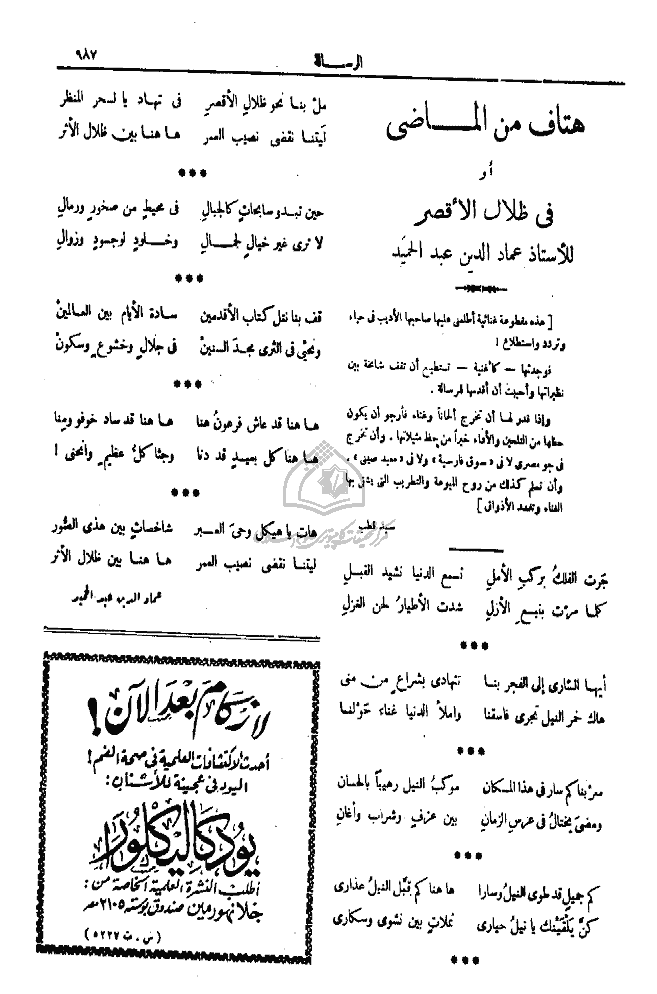 ٩٨٧
الرسالة
هتاف من المـاضى
أو
فى ظلال الأقصر
للأستاذ عماد الدين عبد الحميد
[ هذه مقطوعة غنائية أطلعنى عليها صاحبها الأديب فى حياء
وتردد واستطلاع !
فوجدتها — كأغنية — تستطيع أن تقف شامخة بين
نظيراتها وأحببت أن أقدمها للرسالة .
وإذا قدر لها أن تخرج ألحاناً وغناء فأرجو أن يكون
حظها من التلحين والأداء خيراً من حظ مثيلاتها . وأن تخرج
فى جو مصرى لا فى « سوق فارسية » ولا فى « معبد صينى » .
وأن تسلم كذلك من روح الميوعة والتطريب التى يشقى بها
الغناء وتفسد الأذواق ]
سيد قطب
جرت الفلك بركب الأملِ تسمع الدنيا نشيد القبلِ
كلما مرّت بنبع الأزلِ شدت الأطيار لحن الغزلِ
***
أيها السارى إلى الفجر بنا تتهادى بشراع من منى
هاك خمر النيل تجرى فاسقنا واملأ الدنيا غناء حولنا
***
سر بنا كم سار فى هذا المكان موكبُ النيل رهيباً بالحسان
ومضى يختالُ فى عرس الزمان بين عزفٍ وشراب وأغان
***
كم جميلٍ قد طوى النيل وسارا ها هنا كم قبّل النيلُ عذارى
كنَّ يلقينك يا نيلُ حيارى ثملاتٍ بين نشوى وسكارى
***
ملْ بنا نحو ظلال الأقصرِ فى تهاد يا لسحر المنظر
ليتنا نقضى نصيب العمر ها هنا بين ظلال الأثر
***
حين تبدو سابحاتٍ كالجبالِ فى محيطٍ من صخور ورمالِ
لا ترى غير خيالٍ لجمالِ وخلودٍ لوجودٍ وزوالِ
***
قف بنا نقل كتاب الأقدمين سادة الأيام بين العالمينْ
ونحيّى فى الثرى مجدَ السنينْ فى جلالٍ وخشوعٍ وسكونْ
***
ها هنا قد عاش فرعونُ هنا ها هنا قد ساد خوفو ومِنا
ها هنا كل بعيدٍ قد دنا وجثا كلُّ عظيمٍ وانحنى !
***
هات يا هيكل وحىَ العبر شاخصاتٍ بين هذى الصُّور
ليتنا نقضى نصيب العمر ها هنا بين ظلال الأثر
عماد الدين عبد الحميد
لا زكام بعد الآن !
أحدث الاكتشافات العلمية فى صحة الفم !
اليود فى عجينة للأسنان :
يودكاليكلورا
اطلب النشرة العلمية الخاصة من :
جلانهورمين صندوق بوسته ٢١٠٥ مصر
( س . ت ٥٢٢٧ )